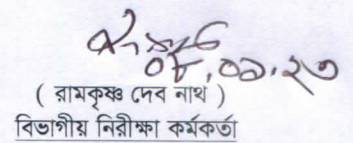 ০৮.০১.২৩
( রামকৃষ্ণ দেব নাথ )
বিভাগীয় নিরীক্ষা কর্মকর্তা